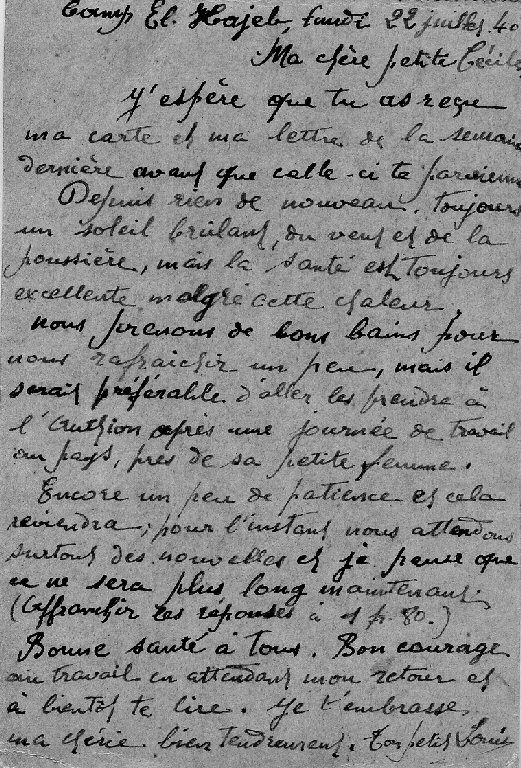 Camp El. Hajeb, lundi 22 juillet 40
Ma chère petite Cécile
J'espère que tu as reçu
ma carte et ma lettre de la semaine
dernière avant que celle-ci te parvienne
Depuis rien de nouveau. Toujours
un soleil brûlant, du vent et de la
poussière, mais la santé est toujours
excellente malgré cette chaleur,
nous prenons de bons bains pour
nous rafraichir un peu, mais il
serait préférable d'aller les prendre à
l'Authion après une journée de travail
au pays, près de sa petite femme.
Encore un peu de patience et cela
reviendra; pour l'instant nous attendons
surtout des nouvelles et je pense que
ce ne sera plus long maintenant.
(Affranchir les réponses à 1 f. 80.)
Bonne santé à tous. Bon courage
au travail en attendant mon retour et
à bientôt te lire. Je t'embrasse,
ma chérie bien tendrement. Ton petit Louis